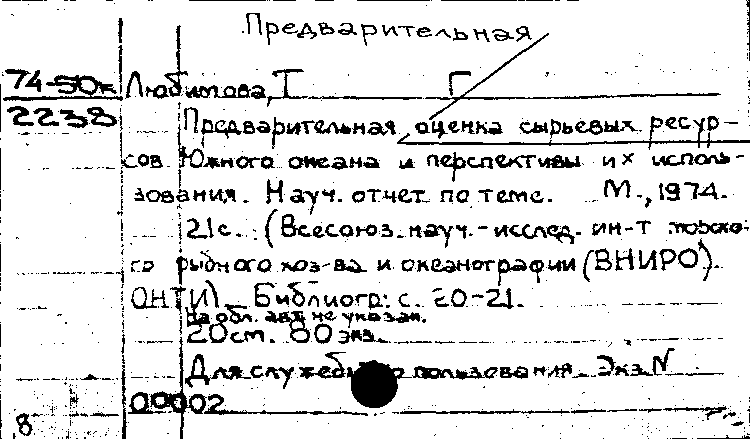 Предварительная
74-50к Любимова, Т Г
2238
Предварительная оценка сырьевых ресур-
сов Южного океана и перспективы их исполь-
зования. Науч. отчет по теме. М., 1974.
21с. (Всесоюз. науч.-исслед. ин-т морско-
го рыбного хоз-ва и океанографии (ВНИРО).
ОНТИ) Библиогр: с. 20-21.
На обл. авт. не указан.
20см. 80 экз.
Для служебного пользования. Экз. N
00002
8